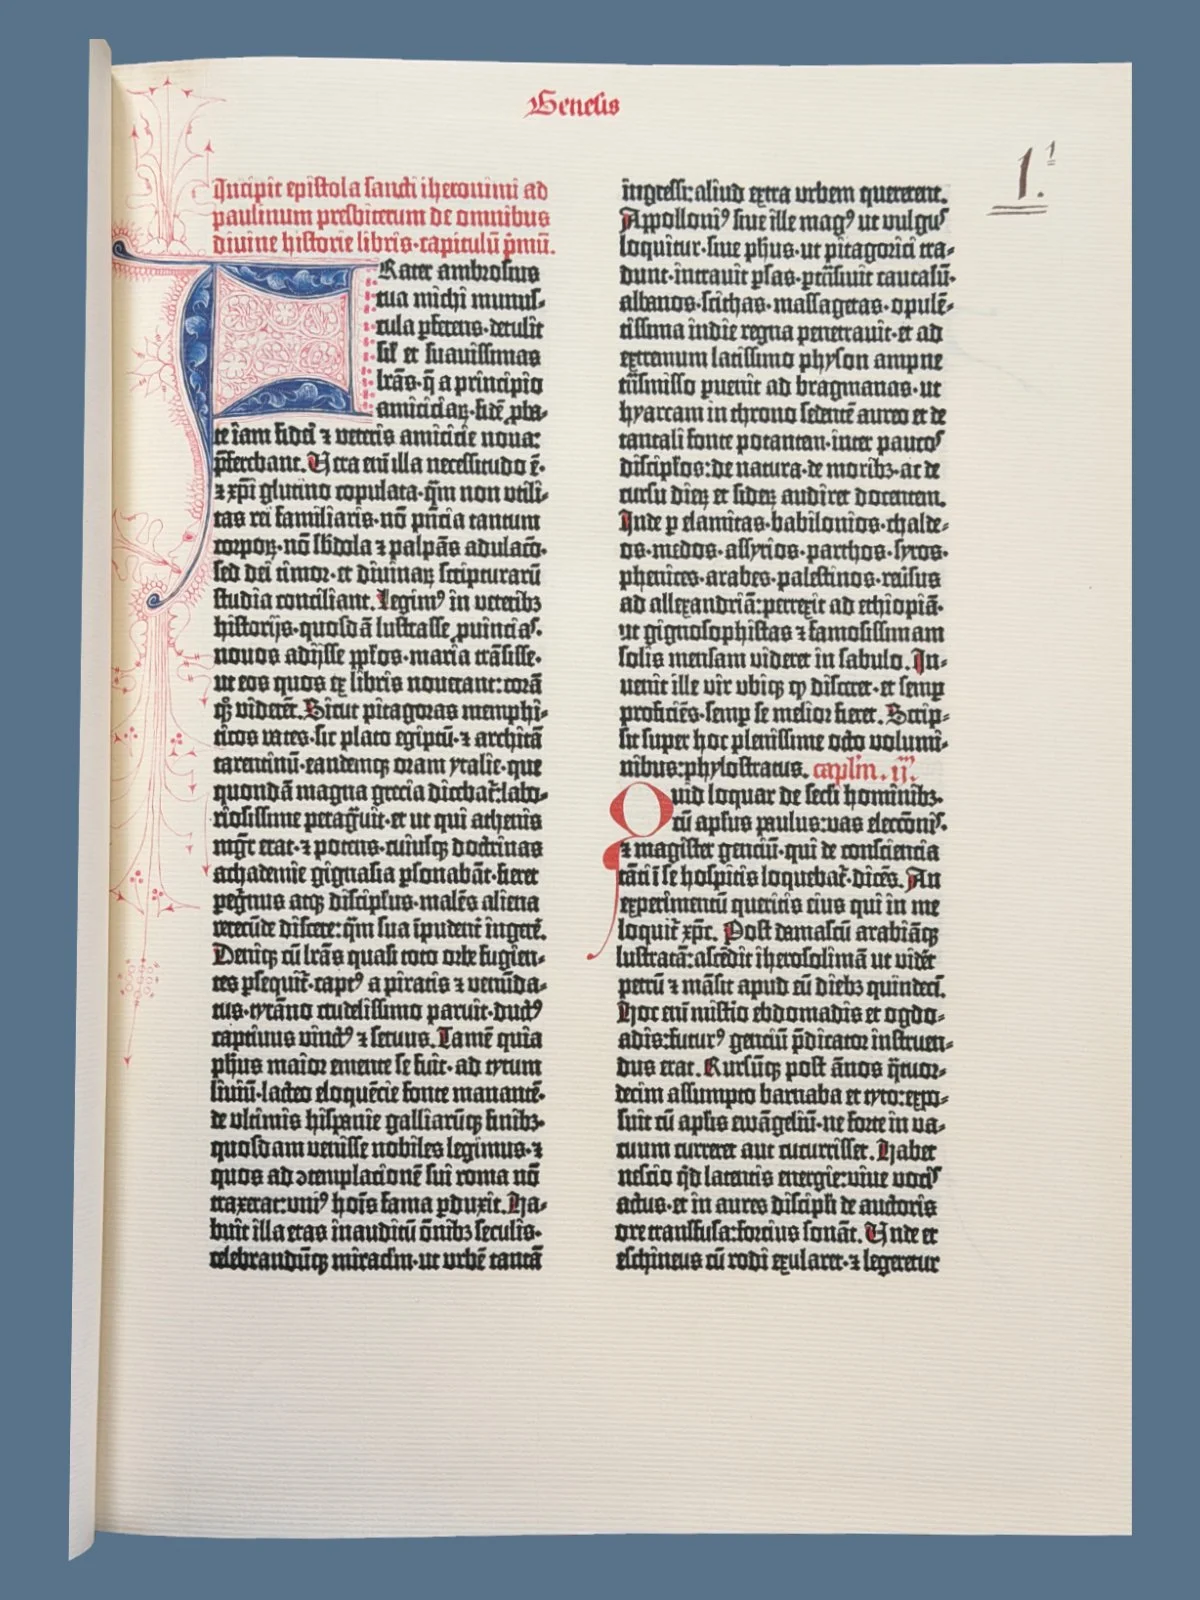 Genesis
1.1
Incipit epistola sancti iheronimi ad
paulinum presbiterum de omnibus
divine historie libris·capitulū p̄mū.
Frater ambrosius
tua michi munus-
cula ꝑferens·detulit
sil̕ et suavissimas
lr̄as·q̄ a principio
amiciciaꝝ·fidē ꝓba-
te iam fidei ⁊ veteris amicicie nova:
p̄ferebant. Vera eni̅ illa necessitudo ē·
⁊ xp̄i glutino copulata·qm̄ non utili-
tas rei familiaris·nō pn̄cia tantum
corpoꝝ·nō sb̄dola ⁊ palpās adulacō·
sed dei timor·et divinaꝝ scripturarū
studia conciliant. Legimꝰ in veteribꝫ
historijs·quosdā lustrasse ꝓvinciaˢ·
novos adijsse ꝓpl̄os·maria trāsisse·
ut eos quos ex libris noverant:corā
qꝫ viderēt. Sicut pitagoras memphi-
ticos vates·sic plato egiptū·⁊ architā
tarentinū·eandemqꝫ oram ytalie·que
quondā magna grecia dicebat̄:labo-
riosissime peragravit·et ut qui athenis
mgr̄ erat·⁊ potens·cuiusqꝫ doctrinas
achademie gignasia ꝑsonabāt·fieret
peg̓nus atqꝫ discipulus·malēs aliena
verecūde discere:qm̄ sua īpudent̄ ingerē.
Deniqꝫ cū lr̄as quasi toto orbe fugien-
tes ꝑsequit̄·captꝰ a piratis ⁊ venūda-
tus·tyrāno crudelissimo paruit·ductꝰ
captivus vinctꝰ ⁊ servus. Tamē quia
ph̄us maior emente se fuit· ad tytum
liviū·lacteo eloquēcie fonte manantē·
de ultimis hispanie galliarūqꝫ finibꝫ·
quosdam venisse nobiles legimus·⁊
quos ad ↄtemplacionē sui roma nō
traxerat:uniꝰ hoīs fama ꝑduxit. Ha-
buit illa etas inauditū ōnibꝫ seculis·
celebrandūqꝫ miraclm̄·ut urbē tantā
ingressi:aliud extra urbem quererent.
Appolloniꝰ sive ille magꝰ ut vulguˢ
loquitur·sive ph̄us·ut pitagorici tra-
dunt·intravit ꝑsas·ꝑtrāsivit caucasū·
albanos·scithas·massagetas·opulē-
tissima indie regna penetravit·et ad
extremum latissimo physon ampne
trāsmisso ꝑvenit ad bragmanas·ut
hyarcam in throno sedentē aureo et de
tantali fonte potantem·inter paucoˢ
discipl̄os:de natura·de moribꝫ·ac de
cursu dieꝝ et sideꝝ audiret docentem.
Inde ꝑ elamitas·babilonios·chalde-
os·medos·assyrios·parthos·syros·
phenices·arabes·palestinos·reversus
ad allexandriā:perrexit ad ethiopiā·
ut gignosophistas ⁊ famosissimam
solis mensam videret in sabulo. In-
venit ille vir ubiqꝫ qꝫ disceret·et semꝑ
proficiēs·semꝑ se melior fieret. Scrip-
sit super hoc plenissime octo volumi-
nibus:phylostratus. caplm̄. ij.
Quid loquar de secli hominibꝫ·
cū aplus paulus:vas eleccōniˢ·
⁊ magister genciū·qui de consciencia
tāti ī se hospitis loquebat̄·dicēs. An
experimentū queritis eius qui in me
loquit̄ xp̄c. Post damascū arabiāqꝫ
lustratā:ascēdit iherosolimā ut vidēt
petrū ⁊ māsit apud eū diebꝫ quindeci̅.
Hoc eni̅ mistio ebdomadis et ogdo-
adis:futurꝰ genciū p̄dicator instruen-
dus erat. Rursūqꝫ post ānos q̄tuor-
decim assumpto barnaba et tyto:expo-
suit cū aplis ewāgeliū·ne forte in va-
cuum curreret aut cucurrisset. Habet
nescio qd̄ latentis energie:vive vociˢ
actus·et in aures discipli de auctoris
ore transfusa:forcius sonāt. Unde et
eschineus cū rodi exularet·⁊ legeretur